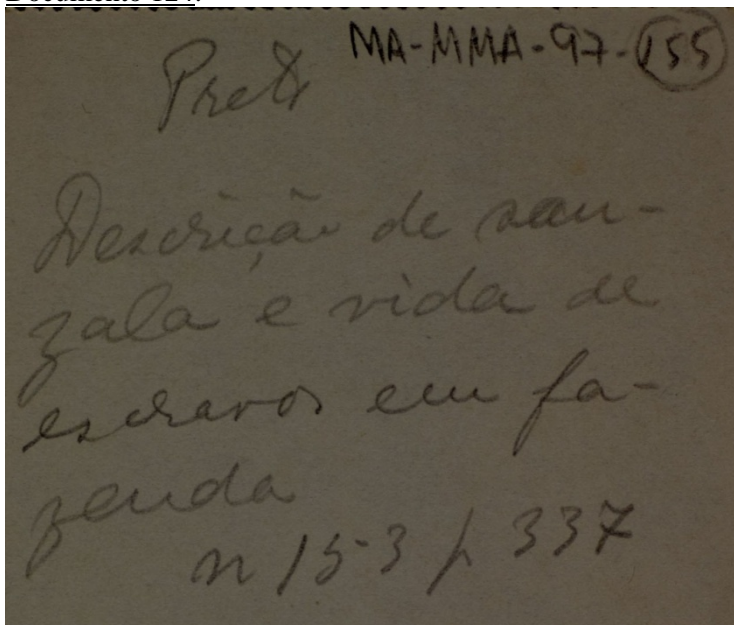 MA-MMA-97-155
Preto
Descrição de sen-
zala e vida de
escravos em fa-
zenda
n 153 p 337